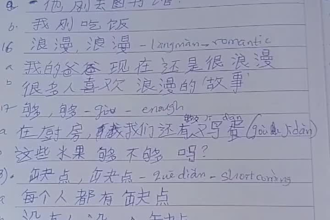 b. 我刚吃饭
16 浪漫, 浪漫 - làngmàn - romantic
a 我的爸爸现在还是很浪漫
b 很多人喜欢浪漫的故事
17 够, 够 - gòu - enough
a 在厨房, 我们还有
b 这些水果够不够吗?
缺点, 缺点 - quēdiǎn - shortcoming
a 每个人都有缺点